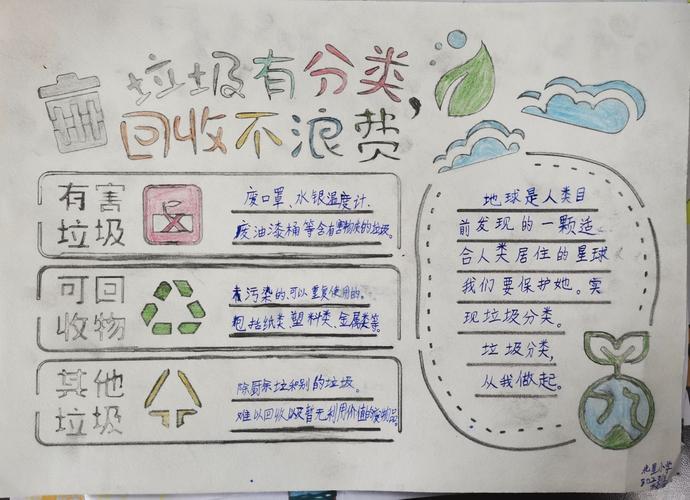 垃圾有分类,
回收不浪费
有害
垃圾
废口罩、水银温度计.
废油漆桶等含有害物质的垃圾。
可回
收物
污染的,可以重复使用的。
包括纸类,塑料类、金属类等。
其他
垃圾
的垃圾。
难以回收以及暂无利用价值的废物品。
地球是人类目
前发现的一颗适
合人类居住的星球
我们要保护她。实
现垃圾分类。
垃圾分类,
从我做起。
小学